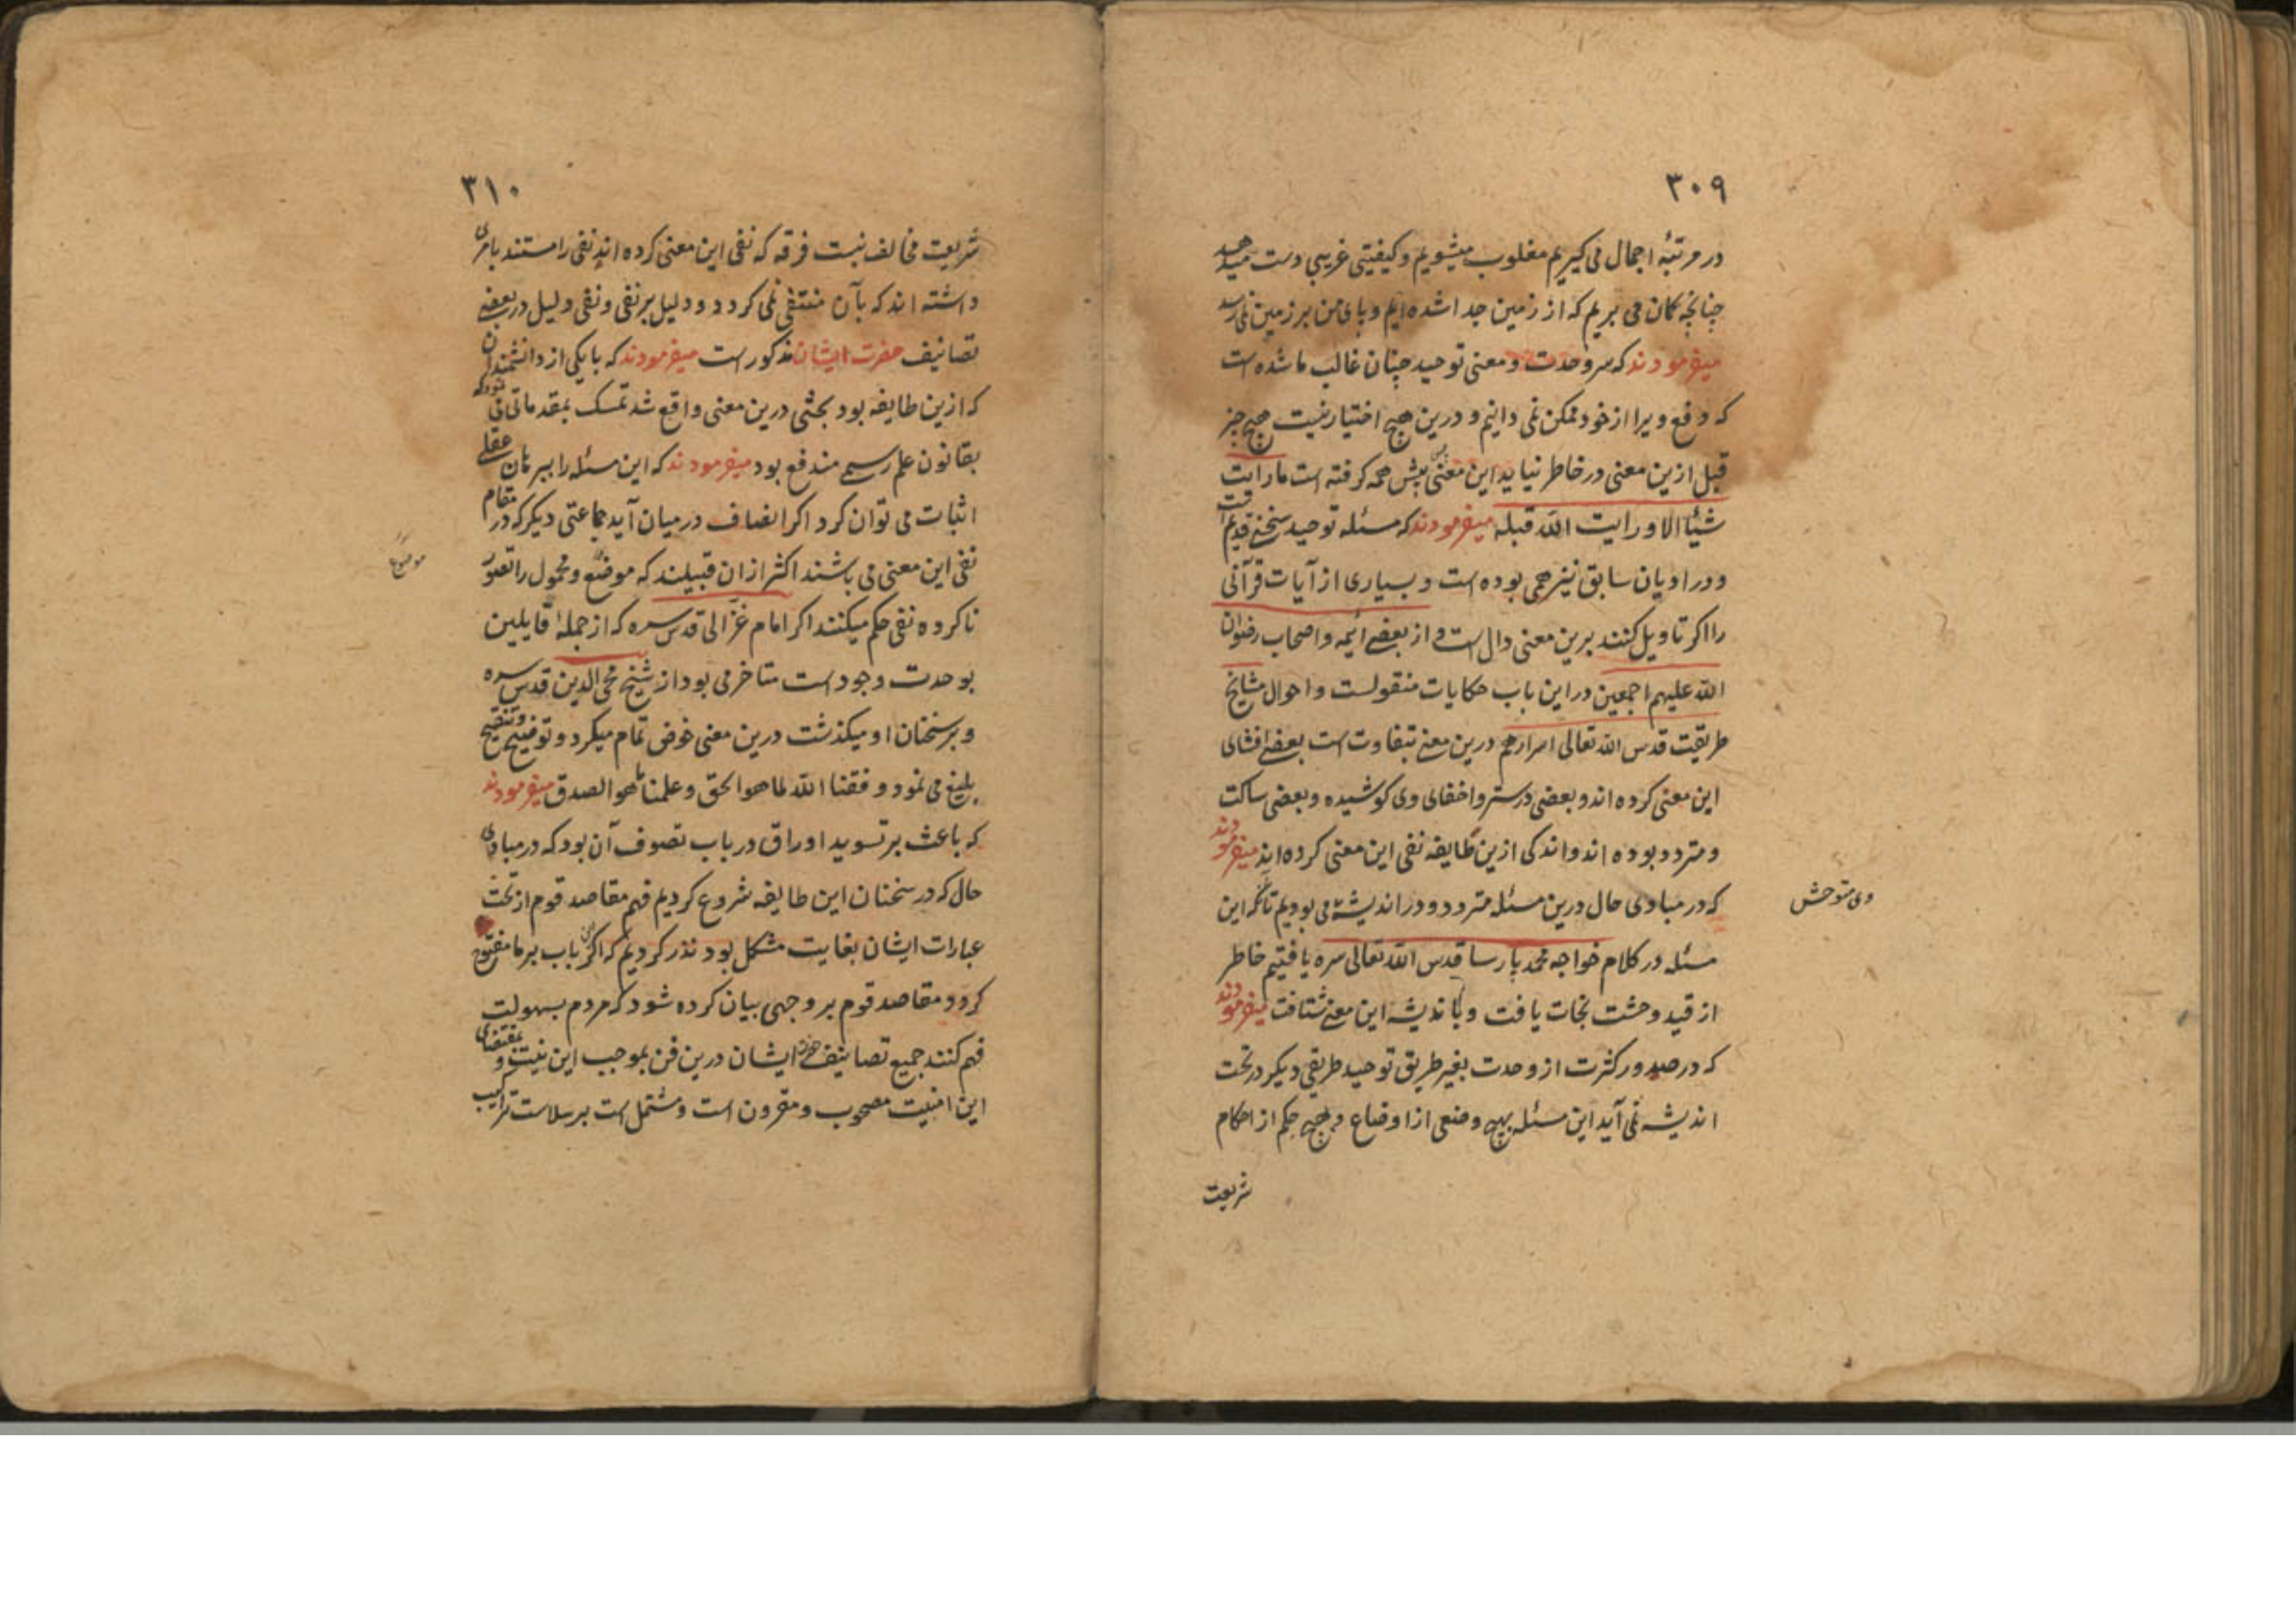 ۳۰۹
در مرتبهٔ اجمال می کیریم مغلوب میشویم و کیفیتی غریبی دست میدهد
چنانچه کمان می بریم که از زمین جدا شده ایم و پای من بر زمین نمی رسد
میفرمودند که سر وحدت و معنی توحید چنان غالب ما شده است
که دفع ویرا از خود ممکن نمی دانیم و درین هیچ اختیار نیست هیچ چیز
قبل ازین معنی در خاطر نیاید این معنی پیش همه کرفته است ما رایت
شیئا الا و رایت الله قبله میفرمودند که مسئله توحید سخنی قدیم است
و در ادیان سابق نیز همی بوده است و بسیاری از آیات قرآنی
را اکر تاویل کنند برین معنی دال است و از بعضی ایمه و اصحاب رضوان
الله علیهم اجمعین در این باب حکایات منقولست و احوال مشایخ
طریقت قدس الله تعالی اسرارهم درین معنی تتفاوت است بعضی افشای
این معنی کرده اند و بعضی در ستر و اخفای وی کوشیده و بعضی ساکت
و متردد بوده اند و اندکی ازین طایفه نفی این معنی کرده اند میفرمودند
که در مبادی حال درین مسئله متردد و در اندیشه می بودیم تا آنکه این
وی متوحش
مسئله در کلام خواجه محمد پارسا قدس الله تعالی سره یافتیم خاطر
از قید وحشت نجات یافت و با ندیشه این معنی شتافت میفرمودند
که در صدور کثرت از وحدت بغیر طریق توحید طریقی دیکر در تحت
اندیشه نمی آید این مسئله بهیچ وضعی از اوضاع و هیچ حکم از احکام
شریعت
۳۱۰
شریعت مخالف نیست فرقه که نفی این معنی کرده اند نفی را مستند بامری
داشته اند که بآن منتفی نمی کردد و دلیل بر نفی و نفی دلیل در بعضی
تصانیف حضرت ایشان مذکور است میفرمودند که با یکی از دانشمندان
که ازین طایفه بود بحثی درین معنی واقع شد تمسک بمقدماتی می نمود که
بقانون علم رسمی مندفع بود میفرمودند که این مسئله را ببرهان عقلی
اثبات می توان کرد اکر انصاف در میان آید جماعتی دیکر که در مقام
نفی این معنی می باشند اکثر از ان قبیلند که موضع و محمول را تصور
موضوع
ناکرده نفی حکم میکنند اکر امام غزالی قدس سره که از جملهٔ قایلین
بوحدت وجود است متاخر می بود از شیخ محی الدین قدس سره
و بر سخنان او میکذشت درین معنی خوض تمام میکرد و توضیح و تنقیح
بلیغ می نمود وفقنا الله لما هو الحق و علمنا ما هو الصدق میفرمودند
که باعث بر تسوید اوراق در باب تصوف آن بود که در مبادی
حال که در سخنان این طایفه شروع کردیم فهم مقاصد قوم از تحت
عبارات ایشان بغایت مشکل بود نذر کردیم که اکر این باب بر ما مفتوح
کردد مقاصد قوم بر وجهی بیان کرده شود که مردم بسهولت
فهم کنند جمیع تصانیف حضرت ایشان درین فن بموجب این نیت و بمقتضای
این امنیت مصحوب و مقرون است و مشتمل است بر سلاست تراکیب